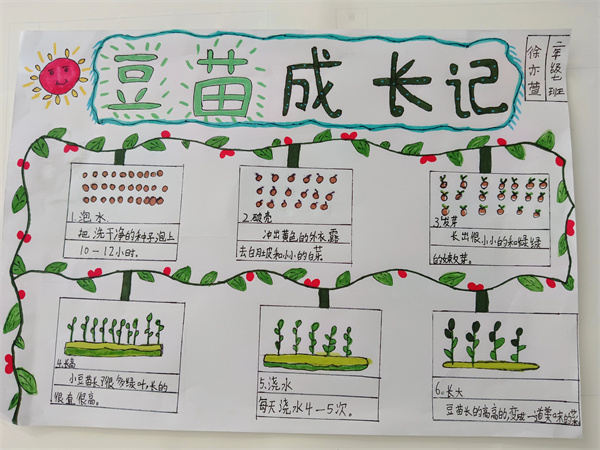 豆苗成长记
二年级七班
徐亦萱
1.泡水
把洗干净的种子泡上
10-12小时。
2.破壳
冲出黄色的外衣露
去白肚皮和小小的白菜
3.发芽
长出很小小的和绿绿
的嫩芽。
4.长高
小豆苗长了很多绿叶,长的
很直很高。
5.浇水
每天浇水4-5次。
6.长大
豆苗长的高高的,变成一道美味的菜